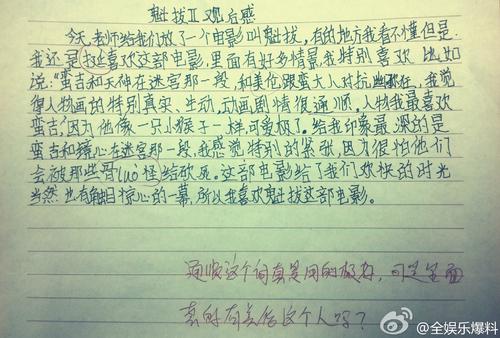 魁拔Ⅱ观后感
今天,老师给我们放了一个电影叫魁拔,有的地方我看不懂但是
我还是挺喜欢这部电影,里面有好多情景我特别喜欢比如
说:“蛮吉和天神在迷宫那一段,和美伦跟蛮大人对抗,我觉
得人物画的特别真实、生动,动画剧情很通顺。人物我最喜欢
蛮吉,因为他像一只小猴子一样,可爱极了。给我印象最深的是
蛮吉和在迷宫那一段,我感觉特别的紧张,因为很怕他们
会被那些骨luó怪给砍死。这部电影给了我们欢快的时光
当然也有触目惊心的一幕,所以我喜欢魁拔这部电影。
通顺这个词真是用的极好,可是里面
真的有美伦这个人吗?
@全娱乐爆料